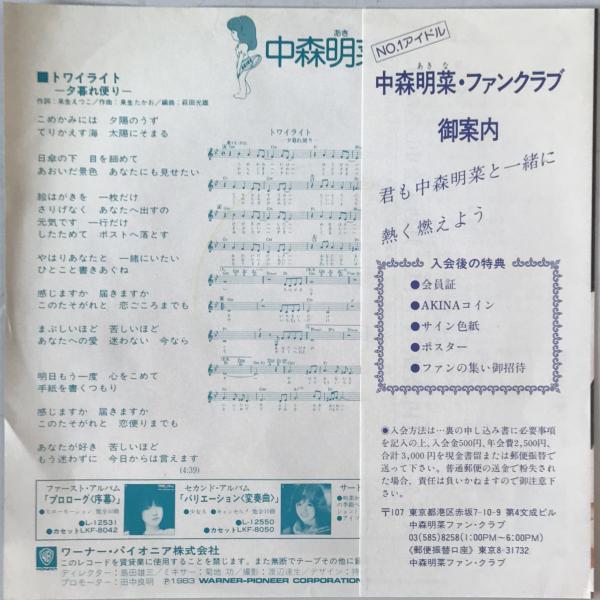 中森明菜
あき
■トワイライト
—夕暮れ便り—
作詞：来生えつこ／作曲：来生たかお／編曲：萩田光雄
こめかみには 夕陽のうず
てりかえす海 太陽にそまる
日傘の下 目を細めて
あおいだ景色 あなたにも見せたい
絵はがきを 一枚だけ
さりげなく あなたへ出すの
元気です 一行だけ
したためて ポストへ落とす
やはりあなたと 一緒にいたい
ひとこと書きあぐね
感じますか 届きますか
このたそがれと 恋ごころまでも
まぶしいほど 苦しいほど
あなたへの愛 迷わない 今なら
明日もう一度 心をこめて
手紙を書くつもり
感じますか 届きますか
このたそがれと 恋便りまでも
あなたが好き 苦しいほど
もう迷わずに 今日からは言えます
(4:39)
トワイライト
—夕暮れ便り—
ファースト・アルバム
「プロローグ〈序幕〉」
●スローモーション 他全10曲
●L-12531
●カセットLKF-8042
セカンド・アルバム
「バリエーション〈変奏曲〉」
●少女A ●キャンセル! 他全10曲
●L-12550
●カセットLKF-8050
サード
ワーナー・パイオニア株式会社
このレコードを賃貸業に使用することを禁じます。また無断でテープその他に録
ディレクター：島田雄三／ミキサー：菊地 功／撮影：渡辺達生／デザイン：
プロモーター：田中良明
Ⓟ1983 WARNER-PIONEER CORPORATION
NO.1アイドル
あきな
中森明菜・ファンクラブ
御案内
君も中森明菜と一緒に
熱く燃えよう
入会後の特典
●会員証
●AKINAコイン
●サイン色紙
●ポスター
●ファンの集い御招待
●入会方法は…裏の申し込み書に必要事項
を記入の上、入会金500円、年会費2,500円、
合計3,000円を現金書留または郵便振替で
送って下さい。普通郵便の送金で粉失され
た場合、責任は負いかねますので御注意下
さい。
〒107 東京都港区赤坂7-10-9 第4文成ビル
中森明菜ファン・クラブ
03(585)8258(1:00PM〜6:00PM)
《郵便振替口座》東京8-31732
中森明菜ファン・クラブ